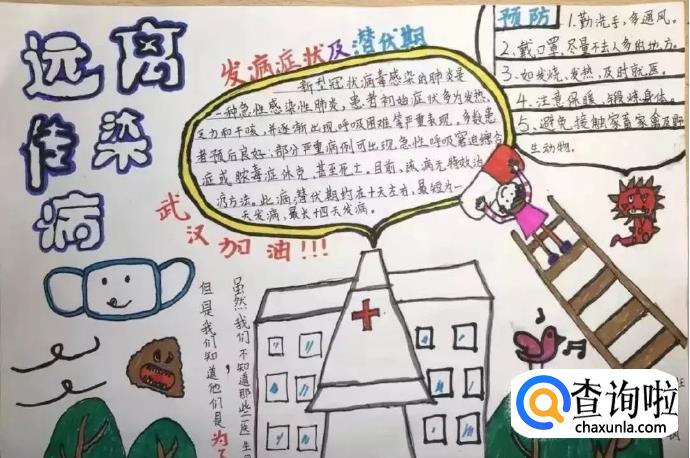 远离
传染
病
发病症状及潜伏期
新型冠状病毒感染的肺炎是
一种急性感染性肺炎,患者初始症状多为发热、
乏力和干咳,并逐渐出现呼吸困难等严重表现。多数患
者预后良好,部分严重病例可出现急性呼吸窘迫综合
症或脓毒症休克,甚至死亡。目前,该病无特效治
疗方法。此病潜伏期约在十天左右,最短为一
天发病,最长十四天发病。
武汉加油!!!
预防
1.勤洗手,多通风。
2.戴口罩,尽量不去人多的地方。
3.如发烧、发热,及时就医。
4.注意保暖,锻炼身体。
5.避免接触家畜家禽及野
生动物。
虽然我们不知道那些医生
但是我们知道他们是为了
查询啦
chaxunla.com